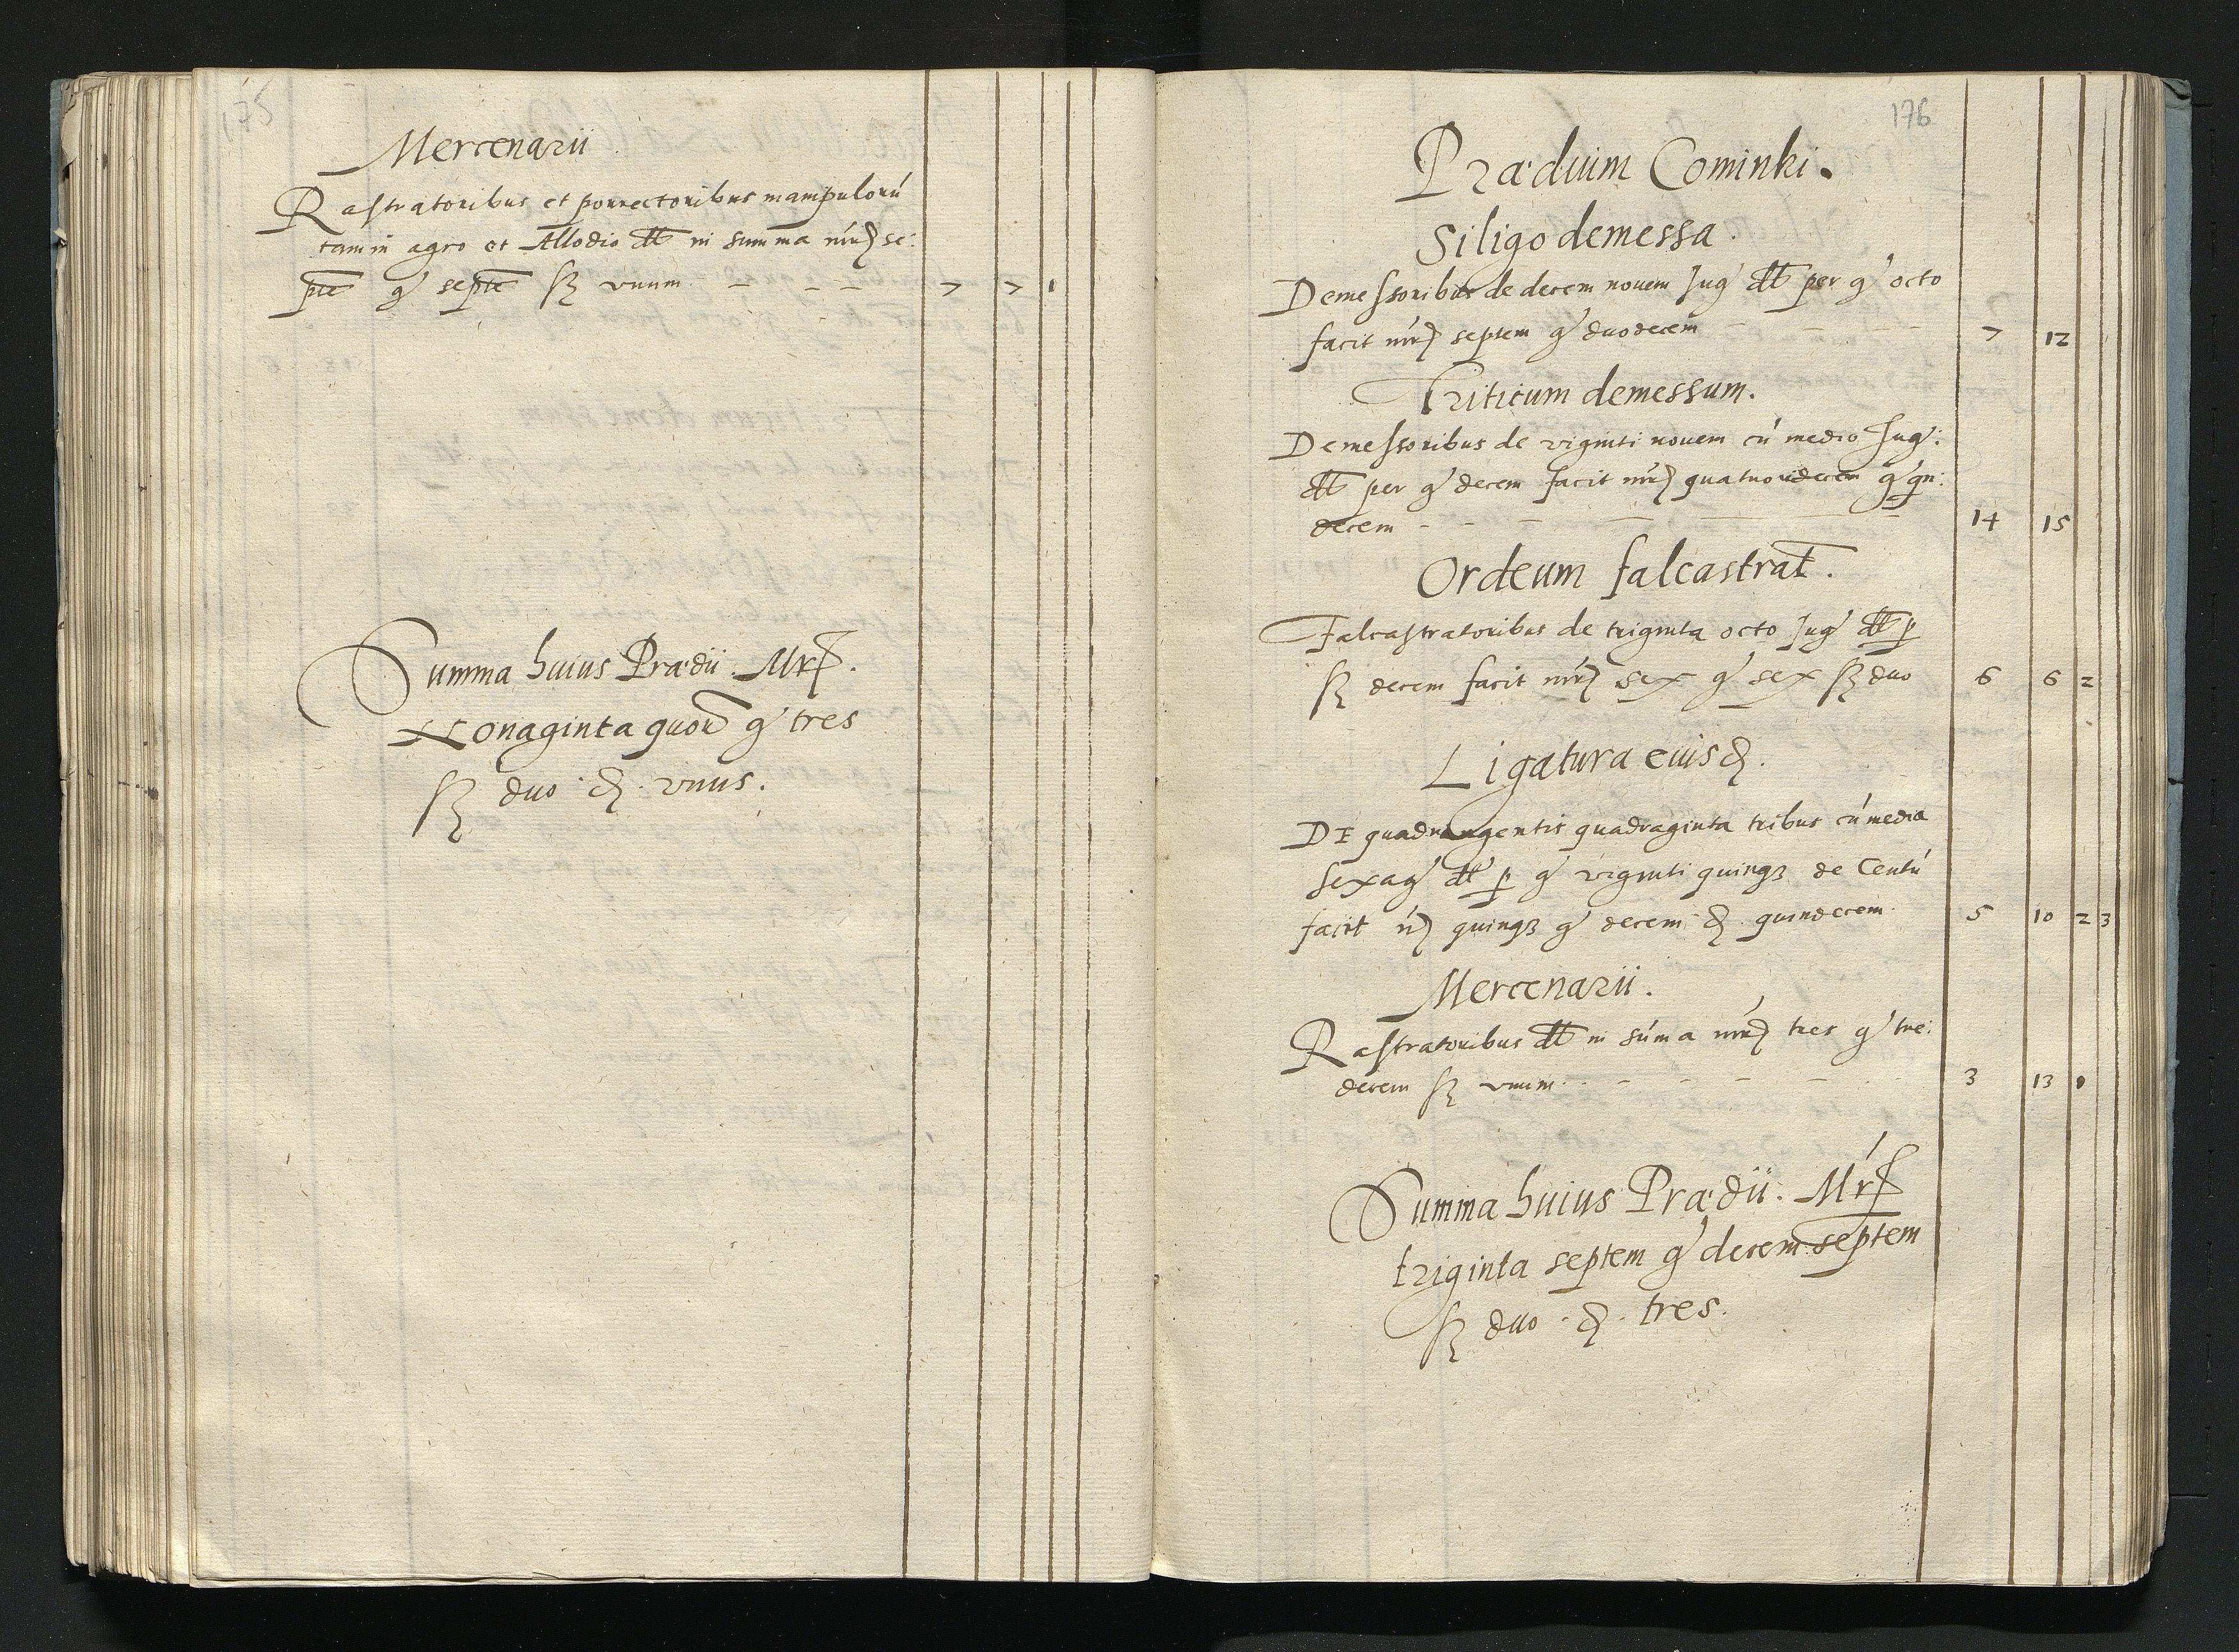 175
Mercenarii
Rastratoribus et porrectoribus manipulorú
tam in agro et Allodio dtt in summa mrć se:
pte g septe ß vnum - - - - 7 7 1
Summa huius Prædii Mrc.
Nonaginta quor g tres
ß duo đ. vnus.
176
Prædium Cominki.
Siligo demessa.
Demessoribus de decem novem Jug dtt per g octo
facit mrć septem g duodecem - - - - 7 12
Triticum demessum.
Demessoribus de viginti novem cú medio Jug:
dtt per g decem facit mrć quatuordecem g qui:
decem - - - - 14 15
Ordeum falcastrat.
Falcastratoribus de triginta octo Jug dtt p
ß decem facit mrć sex g sex ß duo 6 6 2
Ligatura eiusđ.
De quadrangentis quadraginta tribus cú media
sexag dtt p g viginti quinqȝ de Centú
facit mć quinqȝ g decem đ. quindecem 5 10 2 3
Mercenarii.
Rastratoribus dtt in súma mrć tres g tre:
decem ß vnum - - - - 3 13 1
Summa huius Prædii. Mrc
triginta septem g decem septem
ß duo. đ. tres.